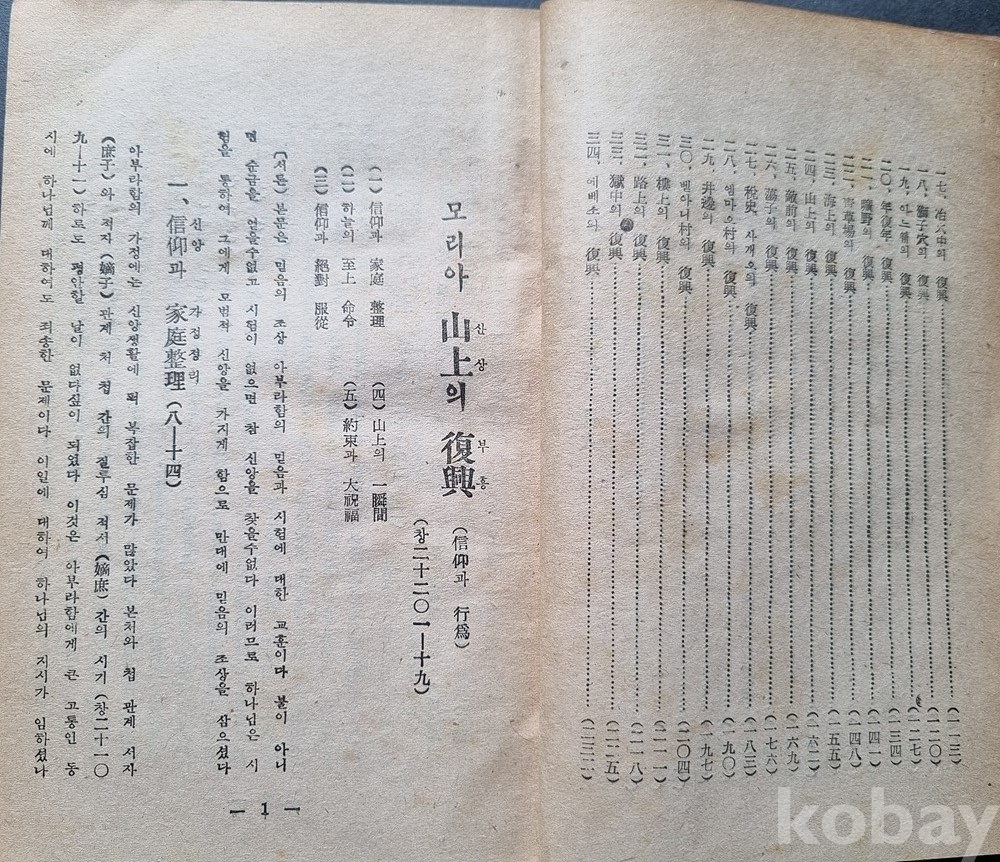 一七、冶火中의 復興………(一一三)
一八、獅子穴의 復興………(一二〇)
一九、아느헴의 復興………(一二七)
二〇、年復年、復興………(一三四)
二一、曠野의 復興………(一四一)
二二、靑草場의 復興………(一四八)
二三、海上의 復興………(一五五)
二四、山上의 復興………(一六二)
二五、敵前의 復興………(一六九)
二六、蕩子의 復興………(一七六)
二七、稅史 사개오의 復興………(一八三)
二八、엠마오村의 復興………(一九〇)
二九、井邊의 復興………(一九七)
三〇、벧아니村의 復興………(二〇四)
三一、樓上의 復興………(二一一)
三二、路上의 復興………(二一八)
三三、獄中의 復興………(二二五)
三四、에베소의 復興………(二三二)
모리아 山上의 復興 (信仰과 行爲)
산상 부흥
(창二十二〇一—十九)
(一) 信仰과 家庭 整理 (四) 山上의 一瞬間
(二) 하늘의 至上 命令 (五) 約束과 大祝福
(三) 信仰과 絕對 服從
(서론) 본문은 믿음의 조상 아부라함의 믿음과 시험에 대한 교훈이다 불이 아니
면 순금을 얻을수없고 시험이 없으면 참 신앙을 찾을수없다 이러므로 하나님은 시
험을 통하여 그에게 모범적 신앙을 가지게 함으로 만대에 믿음의 조상을 삼으셨다
신앙 가정정리
一、信仰과 家庭整理 (八—十四)
아부라함의 가정에는 신앙생활에 퍽 복잡한 문제가 많았다 본처와 첩 관계 서자
(庶子)와 적자(嫡子)관계 처 첩 간의 질루심 적서(嫡庶)간의 시기(창二十一〇
九—十一)하로도 평안할 날이 없다싶이 되였다 이것은 아부라함에게 큰 고통인 동
시에 하나님께 대하여도 죄송한 문제이다 이일에 대하여 하나님의 지시가 임하셨나
— 1 —
kobay